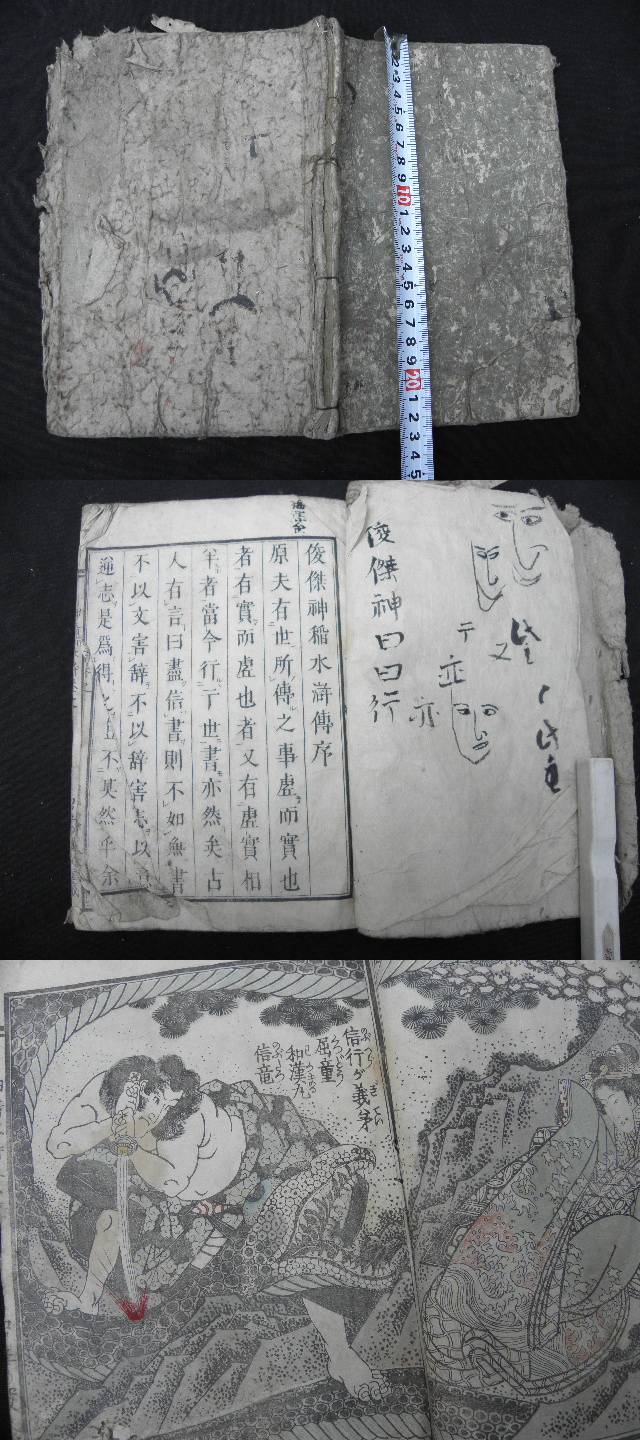 2 3 4 5 6 7 8 9 10 1 2 3 4 5 6 7 8 9 20 1 2 3 4 5
俊傑神曰曰行
亦
テ亦
又
俊傑神稲水滸傳序
原夫有世所傳之事虚而實也
者有實而虚也者又有虚實相
半者當今行于世書亦然矣古
人有言曰盡信書則不如無書
不以文害辞不以辞害志以意
逆志是爲得之豈不其然乎余
信行が義弟
屈童
和漢九
信竜